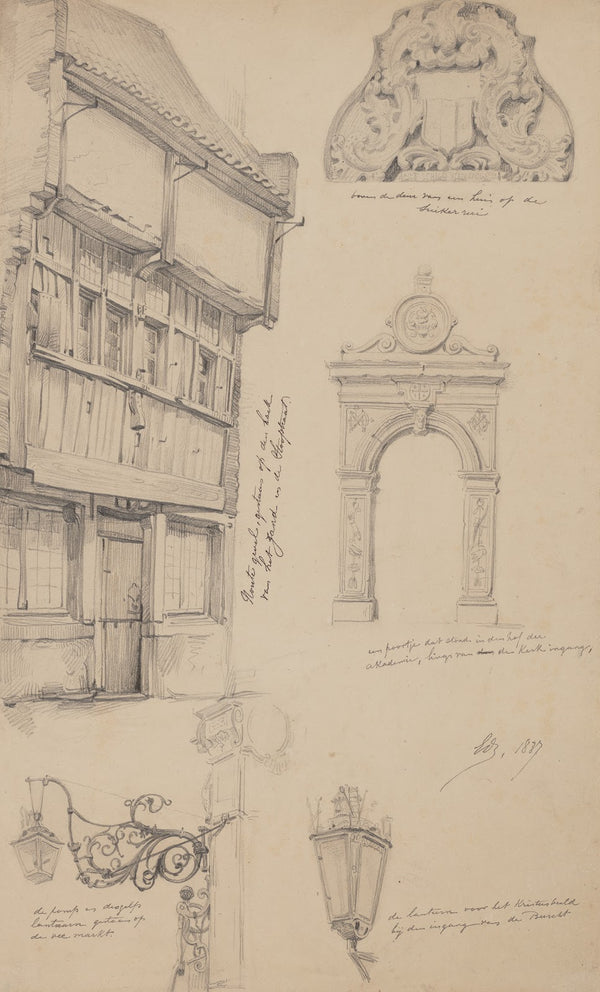 boven de deur van een huis op de
Suikerrui
Houte gevel, gestaan op den hoek
van het Zand en de Ploegstraat
een poortje dat stond in den hof der
akademie, links van de Kerk ingang,
Edz, 1887
de pomp en dezelfs
lantaarn gestaan op
de vee markt
de lantaarn voor het Kristusbeeld
bij den ingang van de Burcht